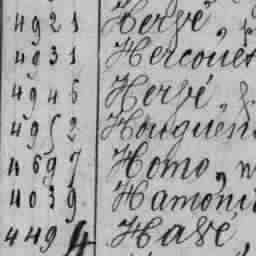 4921 Hervé,
4931 Hercouet
4945 Hervé,
4952 Houguen
4697 Homo,
4039 Hamoni
4494 Havé,